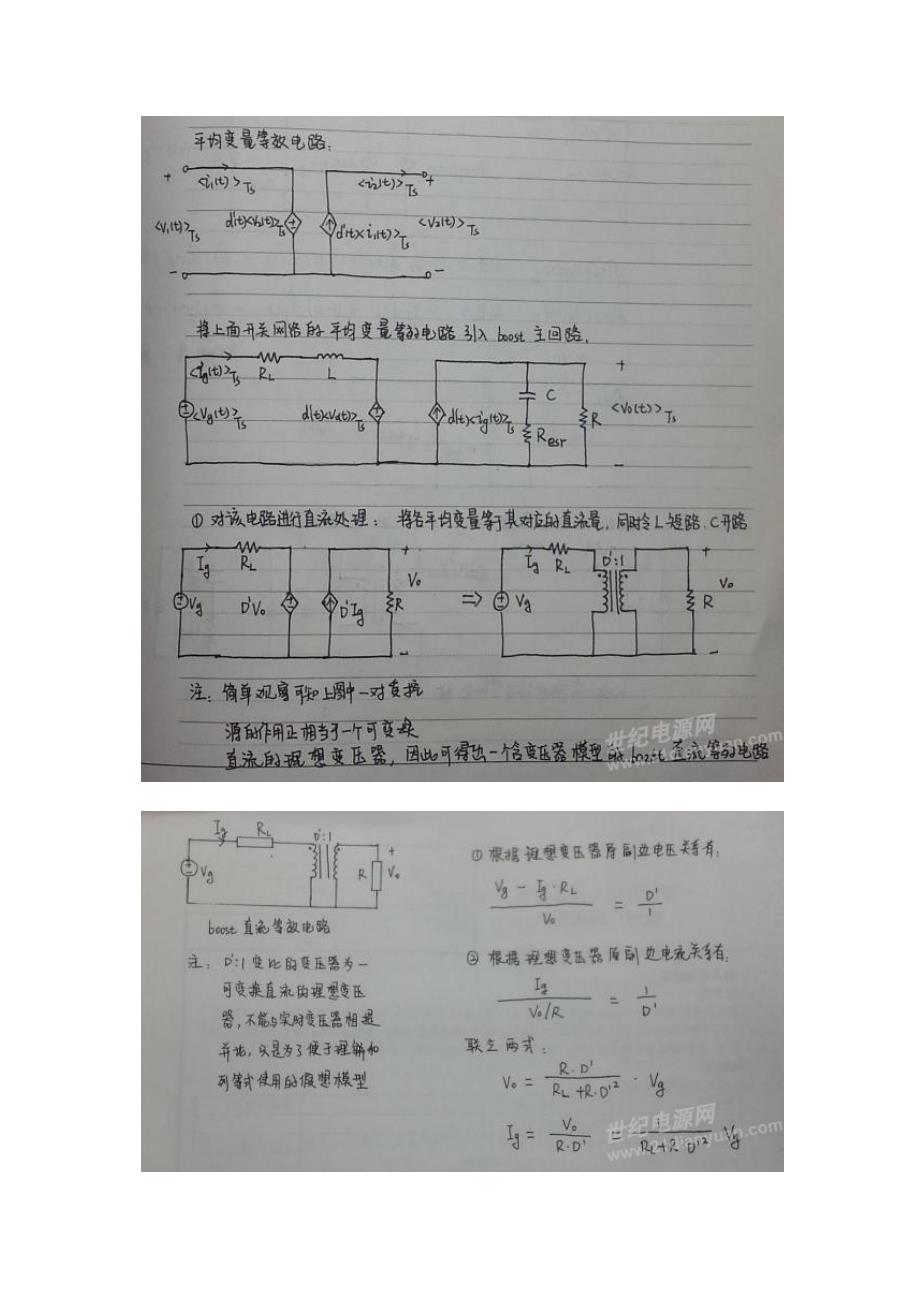 平均变量等效电路：
+ <i₁(t)>Ts <i₂(t)>Ts +
<v₁(t)>Ts d'(t)<v₂(t)>Ts d'(t)<i₁(t)>Ts <v₂(t)>Ts
- -
将上面开关网络的平均变量等效电路引入boost主回路.
<ig(t)>Ts RL L C +
<Vg(t)>Ts d'(t)<Vo(t)>Ts d'(t)<ig(t)>Ts Resr R <Vo(t)>Ts
-
① 对该电路进行直流处理： 将各平均变量等于其对应的直流量，同时令L短路、C开路
Ig RL + Vo Ig RL D':1 + Vo
Vg D'Vo D'Ig R ⇒ Vg R
- -
注：简单观察可知上图中一对受控
源的作用正相当于一个可变换
直流的理想变压器，因此可得出一个含变压器模型的boost直流等效电路
世纪电源网
Ig RL D':1 +
Vg R Vo
-
boost直流等效电路
注：D':1变比的变压器为一
可变换直流的理想变压
器，不能与实际变压器相提
并论，只是为了便于理解和
列等式使用的假想模型
① 根据理想变压器原副边电压关系有：
(Vg - Ig·RL) / Vo = D' / 1
② 根据理想变压器原副边电流关系有：
Ig / (Vo/R) = 1 / D'
联立两式：
Vo = R·D' / (RL+R·D'²) · Vg
Ig = Vo / (R·D') = 1 / (RL+R·D'²) Vg
世纪电源网